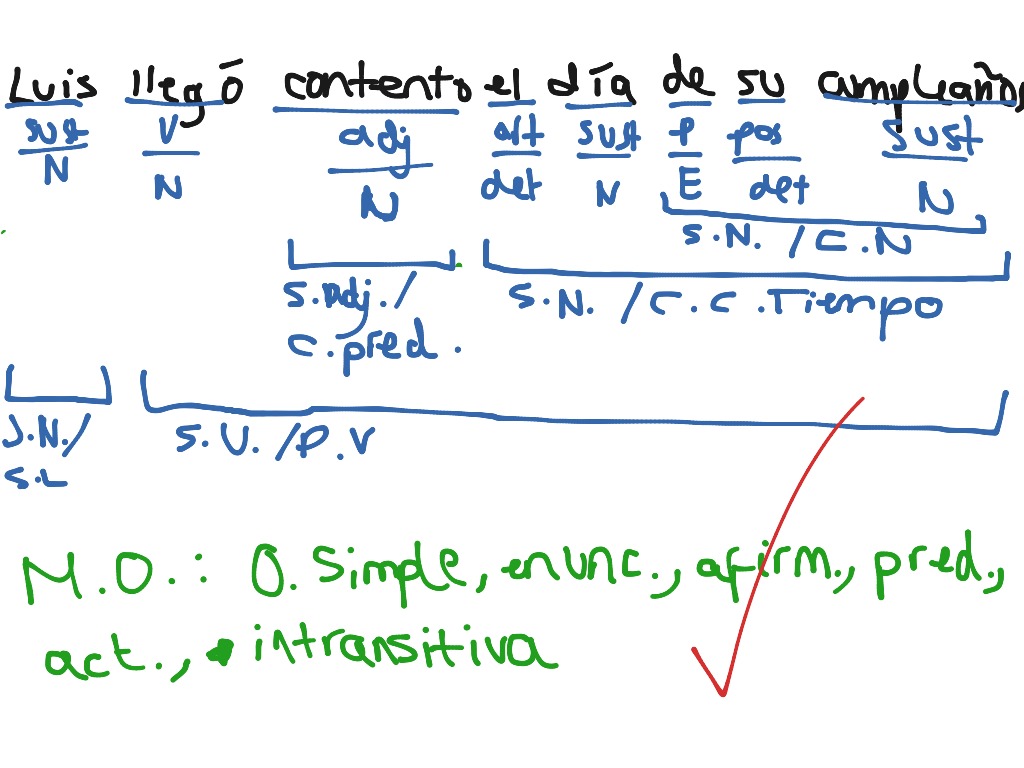 Luis llegó contento el día de su cumpleaños
sust V adj art sust P pos sust
N N N det N E det N
S.N. / C.N
S.Adj. / S.N. / C.C.Tiempo
C.pred.
S.N./ S.V. /P.V
S.L
M.O.: O. Simple, enunc., afirm., pred.,
act., intransitiva